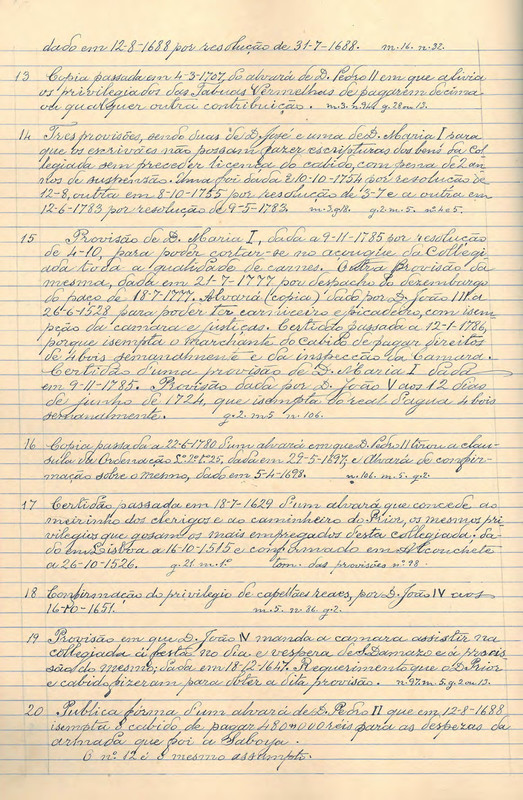 dado em 12-8-1688 por resolução de 31-7-1688. m.16. n.32.
13 Copia passada em 4-3-1707, do alvará de D. Pedro II em que alivia
os privilegiados das Tabuas Vermelhas de pagarem decima
ou qualquer outra contribuição. m.3. g.28 m 13.
14 Tres provisões, sendo duas de D. José e uma de D. Maria I para
que os escrivães não possam fazer escripturas dos bens da Col-
legiada sem preceder licença do cabido, com pena de 2 an-
nos de suspensão. Uma foi dada a 10-10-1754 por resolução de
12-8, outra em 8-10-1755 por resolução de 3-7 e a outra em
12-6-1783 por resolução de 9-5-1783. m.3 g.18. g.2 m.5. nº 4 e 5.
15 Provisão de D. Maria I, dada a 9-11-1785 por resolução
de 4-10, para poder cortar-se no açougue da Collegi-
ada toda a qualidade de carnes. Outra provisão da
mesma, dada em 21-7-1777 por despacho do dezembargo
do paço de 18-7-1777. Alvará (copia) dado por D. João III a
26-6-1528 para poder ter carniceiro e picadeiro, com isem-
pção da camara e justiças. Certidão passada a 12-1-1786,
porque isempta o marchante do cabido de pagar direitos
de 4 bois semanalmente e da inspecção da Camara.
Certidão d'uma provisão de D. Maria I dada
em 9-11-1785. Provisão dada por D. João V aos 12 dias
de junho de 1724, que isempta do real d'agua 4 bois
semanalmente. g.2. m 5 n. 106.
16 Copia passada a 22-6-1780 d'um alvará em que D. Pedro II tirou a clau-
sula da Ordenação L.º 2º t.º 25, dada em 29-5-1697, e Alvará de confir-
mação sobre o mesmo, dado em 5-4-1698. n. 106. m.5. g.2.
17 Certidão passada em 18-7-1629 d'um alvará que concede ao
meirinho dos clerigos e ao caminheiro do Prior, os mesmos pri-
vilegios que gosam os mais empregados desta collegiada; da-
do em Lisboa a 16-10-1515 e confirmado em Alcouchete
a 26-10-1526. g.21 m.1º tom. das provisões nº 98.
18 Confirmação do privilegio de capellães reaes, por D. João IV aos
16-10-1651. m.5. n.86. g.2.
19 Provisão em que D. João IV manda a camara assistir na
collegiada á festa no dia e vespera de S. Damazo e á procis-
são do mesmo; dada em 18-12-1647. Requerimento que o D. Prior
e cabido fizeram para obter a dita provisão. n.97. m.5. g.2 ou 13.
20 Publica forma d'um alvará de D. Pedro II que em 12-8-1688
isempta o cabido de pagar 480$000 reis para as despezas da
armada que foi a Saboya.
O nº 12 é o mesmo assumpto.